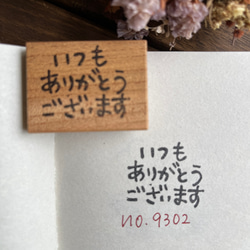 いつも
ありがとう
ございます
いつも
ありがとう
ございます
no.9302